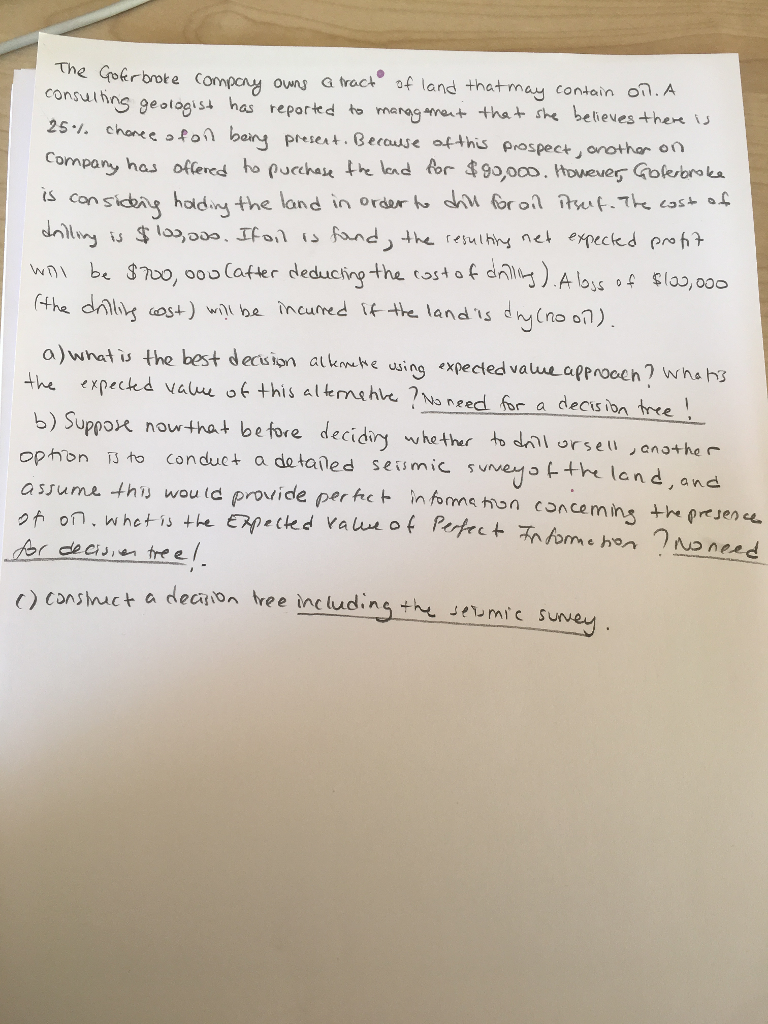 The Goferbroke Company owns a tract of land that may contain oil. A
consulting geologist has reported to management that she believes there is
25%. chance of oil being present. Because of this prospect, another oil
Company has offered to purchase the land for $90,000. However, Goferbroke
is considering holding the land in order to drill for oil itself. The cost of
drilling is $100,000. If oil is found, the resulting net expected profit
will be $700,000 (after deducting the cost of drilling). A loss of $100,000
(the drilling cost) will be incurred if the land is dry (no oil).
a) what is the best decision alternative using expected value approach? What is
the expected value of this alternative? No need for a decision tree!
b) Suppose now that before deciding whether to drill or sell, another
option is to conduct a detailed seismic survey of the land, and
assume this would provide perfect information concerning the presence
of oil. what is the Expected Value of Perfect Information? No need
for decision tree!.
c) construct a decision tree including the seismic survey.